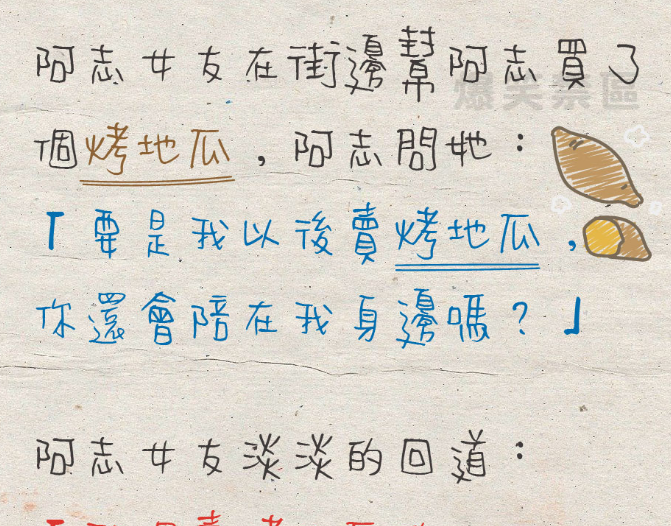 阿志女友在街邊幫阿志買了
爆笑禁區
個烤地瓜,阿志問她:
「要是我以後賣烤地瓜,
你還會陪在我身邊嗎?」
阿志女友淡淡的回道: